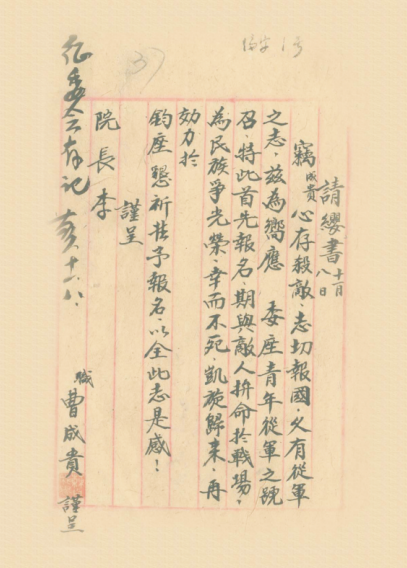 請纓書 十一月八日
竊成貴心存殺敵，志切報國，久有從軍
之志，茲為嚮應 委座青年從軍之號
召，特此首先報名，期與敵人拚命於戰場，
為民族爭光榮，幸而不死，凱旋歸來，再
効力於
鈞座懇祈 准予報名，以全此志是感！
謹呈
院長李
職 曹成貴 謹呈